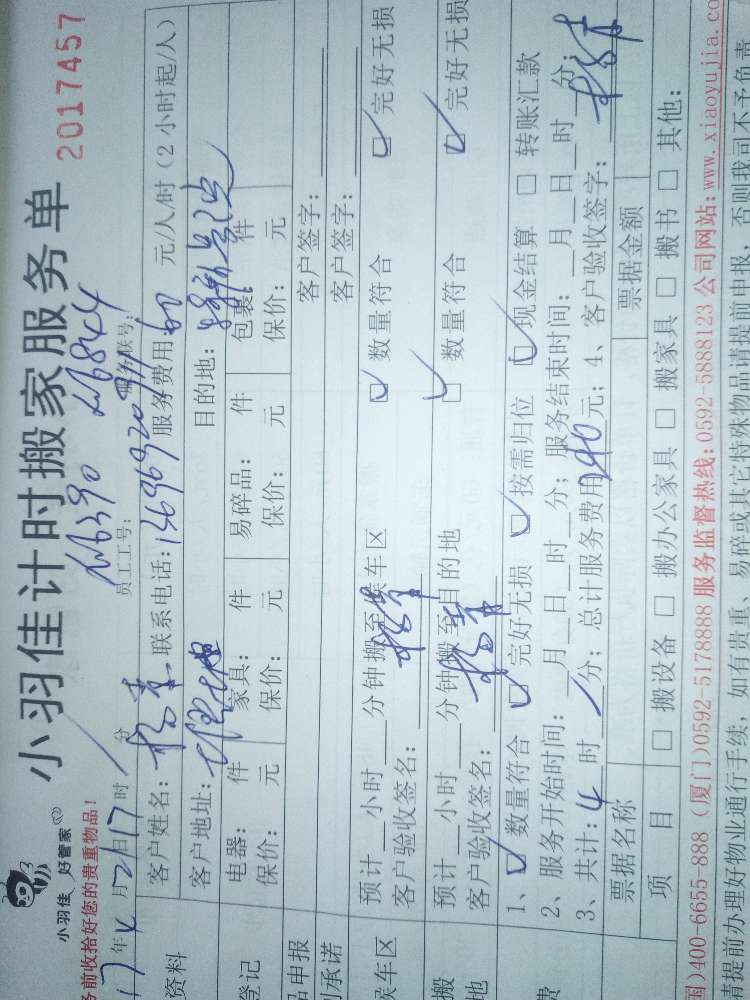 小羽佳计时搬家服务单
2017457
小羽佳 好管家
务前收拾好您的贵重物品!
17年4月21日17时 分
员工工号: 服务联号:
客户姓名: 联系电话: 服务费用: 60 元/人/时(2小时起/人)
资料
客户地址: 目的地:
登记
电器: 件 家具: 件 易碎品: 件 包裹: 件
保价: 元 保价: 元 保价: 元 保价: 元
品申报 客户签字:
承诺 客户签字:
预计 小时 分钟搬至候车区 数量符合 完好无损
候车区 客户验收签名:
预计 小时 分钟搬至目的地 数量符合 完好无损
搬 地 客户验收签名:
1、 数量符合 完好无损 按需归位 现金结算 转账汇款
2、服务开始时间: 月 日 时 分; 服务结束时间: 月 日 时 分;
费 3、共计: 4 时 分; 总计服务费用 240 元; 4、客户验收签字:
票据名称 票据金额
项目 搬设备 搬办公家具 搬家具 搬书 其他:
国)400-6655-888 (厦门)0592-5178888 服务监督热线: 0592-5888123 公司网站: www.xiaoyujia.co
请提前办理好物业通行手续, 如有贵重、易碎或其它特殊物品请提前申报, 否则我司不予负责